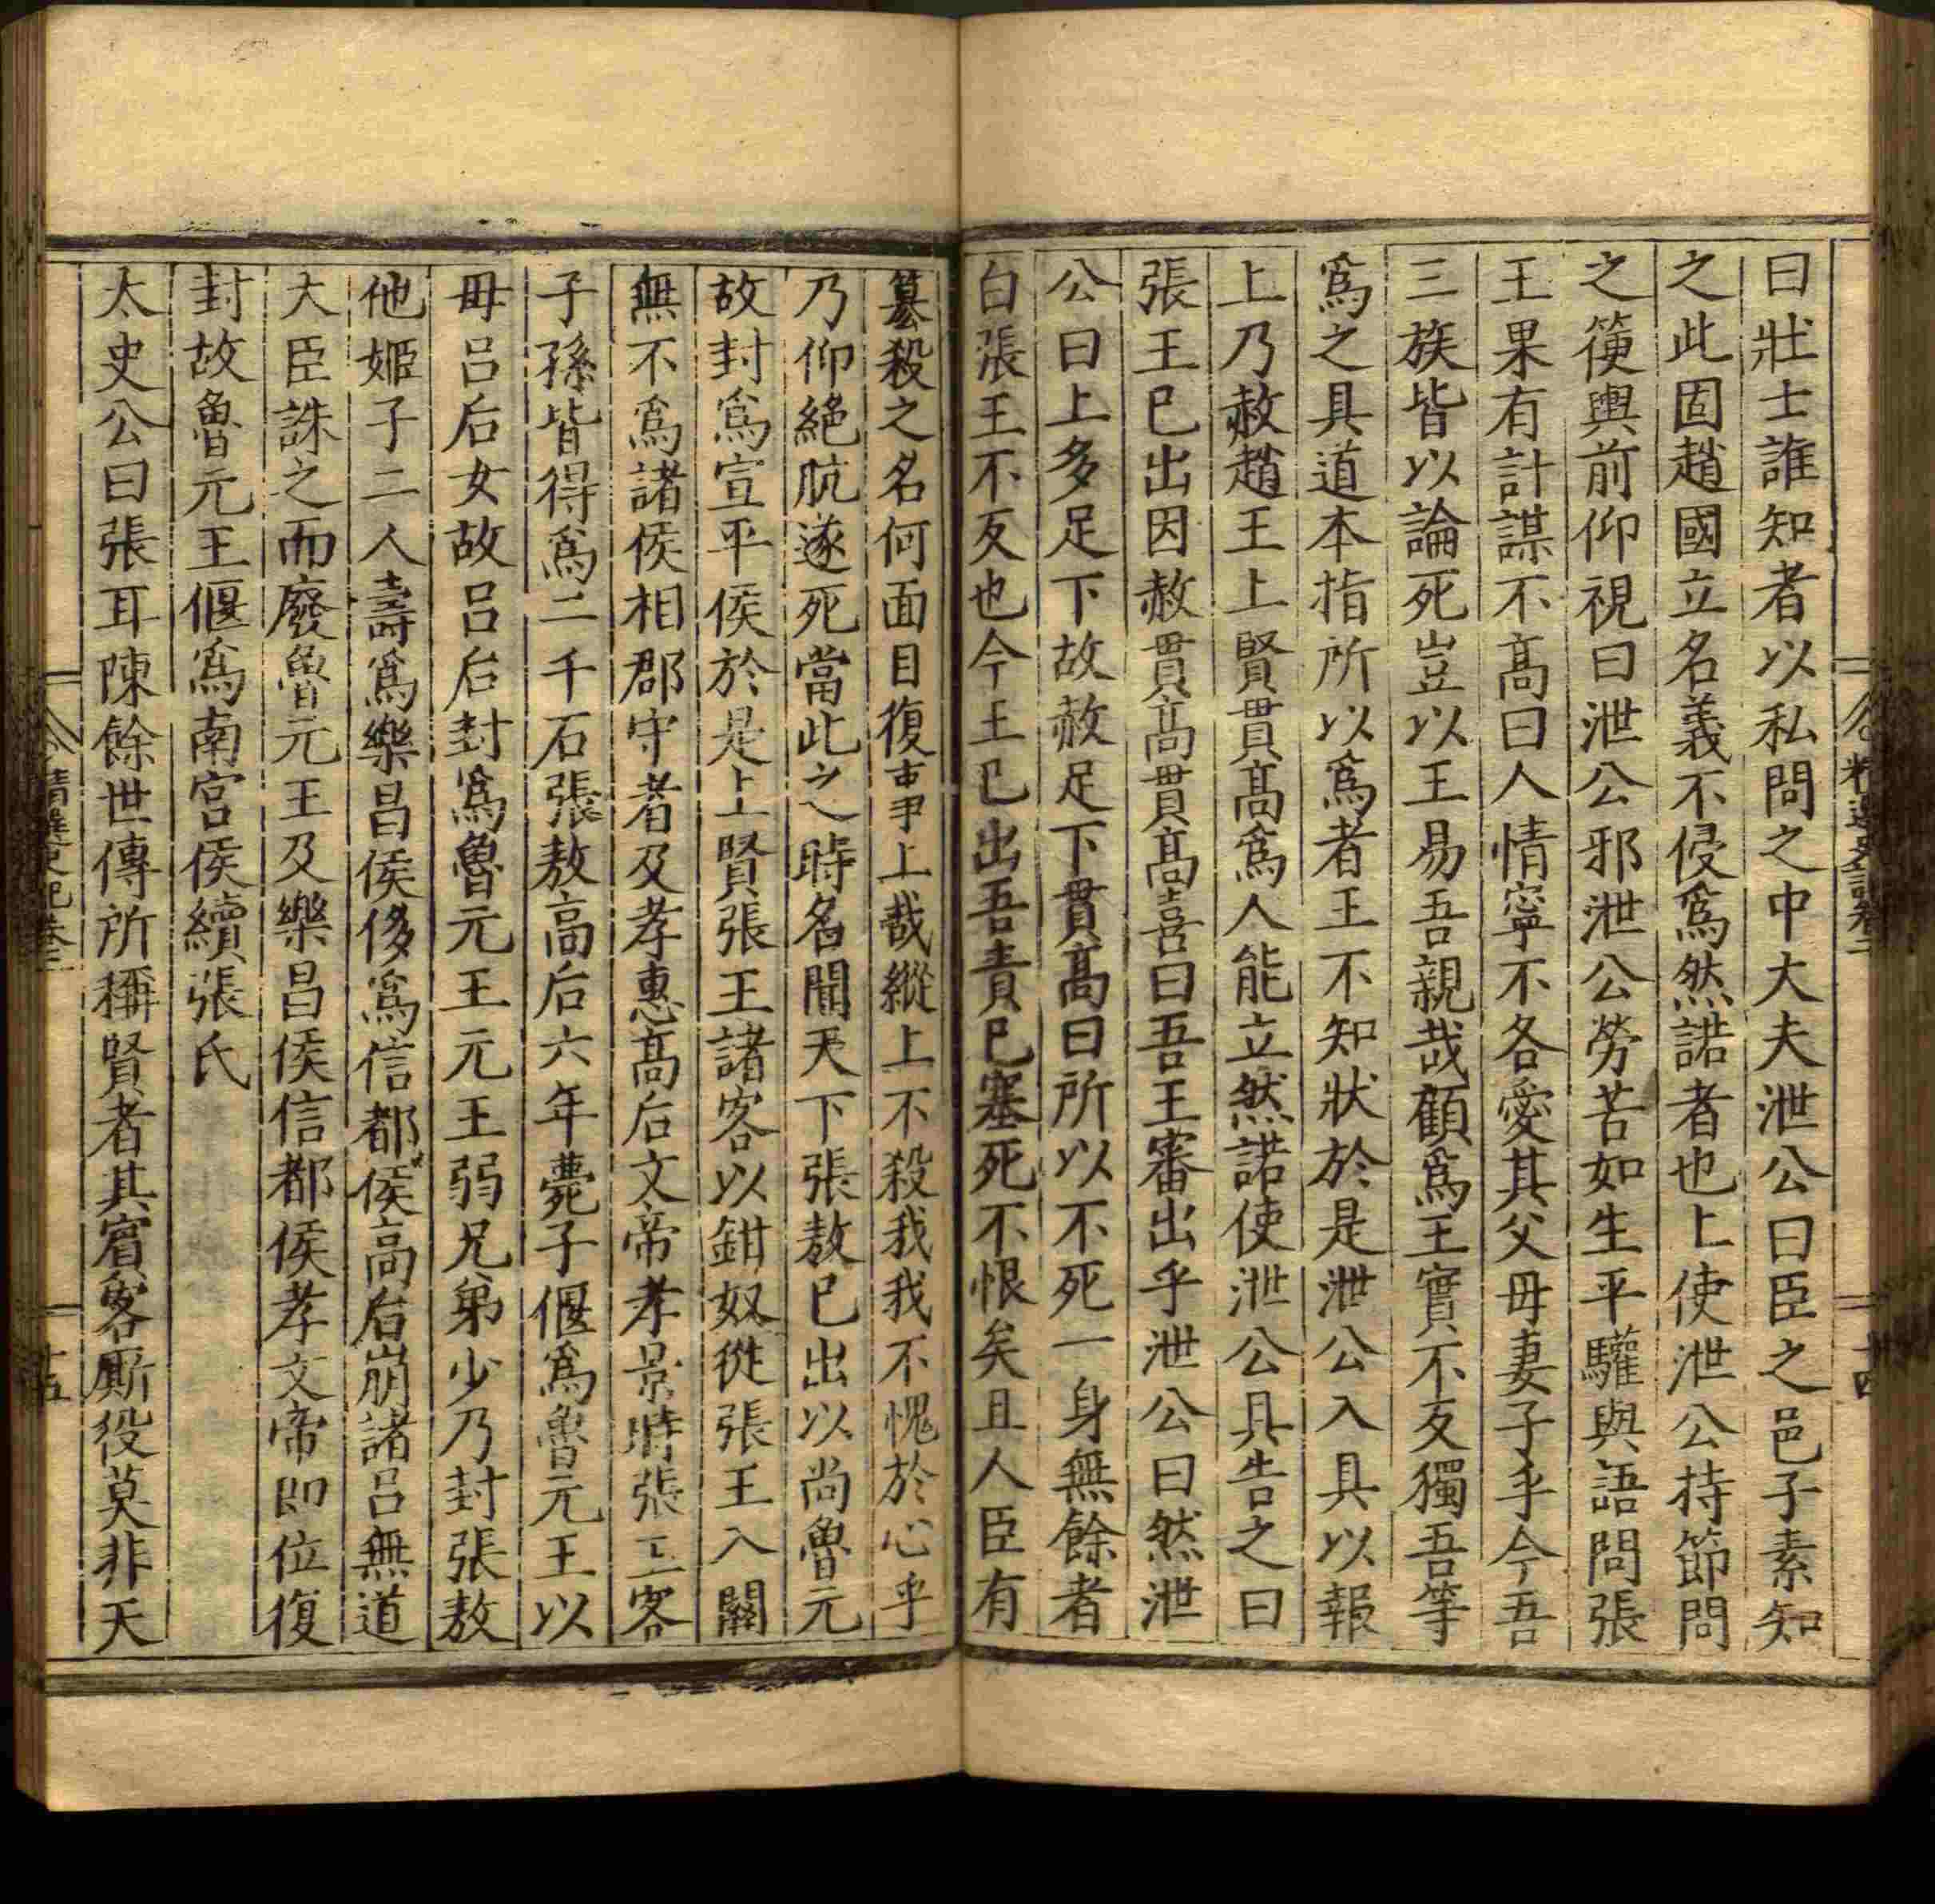 曰壯士誰知者以私問之中大夫泄公曰臣之邑子素知
之此固趙國立名義不侵爲然諾者也上使泄公持節問
之箯輿前仰視曰泄公邪泄公勞苦如生平驩與語問張
王果有計謀不高曰人情寧不各愛其父母妻子乎今吾
三族皆以論死豈以王易吾親哉顧爲王實不反獨吾等
爲之具道本指所以爲者王不知狀於是泄公入具以報
上乃赦趙王上賢貫高爲人能立然諾使泄公具告之曰
張王已出因赦貫高貫高喜曰吾王審出乎泄公曰然泄
公曰上多足下故赦足下貫高曰所以不死一身無餘者
白張王不反也今王已出吾責已塞死不恨矣且人臣有
精選史記卷三
十四
簒殺之名何面目復事上哉縱上不殺我我不愧於心乎
乃仰絕肮遂死當此之時名聞天下張敖已出以尚魯元
故封爲宣平侯於是上賢張王諸客以鉗奴從張王入關
無不爲諸侯相郡守者及孝惠高后文帝孝景時張王客
子孫皆得爲二千石張敖高后六年薨子偃爲魯元王以
母呂后女故呂后封爲魯元王元王弱兄弟少乃封張敖
他姬子二人壽爲樂昌侯侈爲信都侯高后崩諸呂無道
大臣誅之而廢魯元王及樂昌侯信都侯孝文帝即位復
封故魯元王偃爲南宮侯續張氏
太史公曰張耳陳餘世傳所稱賢者其賓客厮役莫非天
精選史記卷三
十五